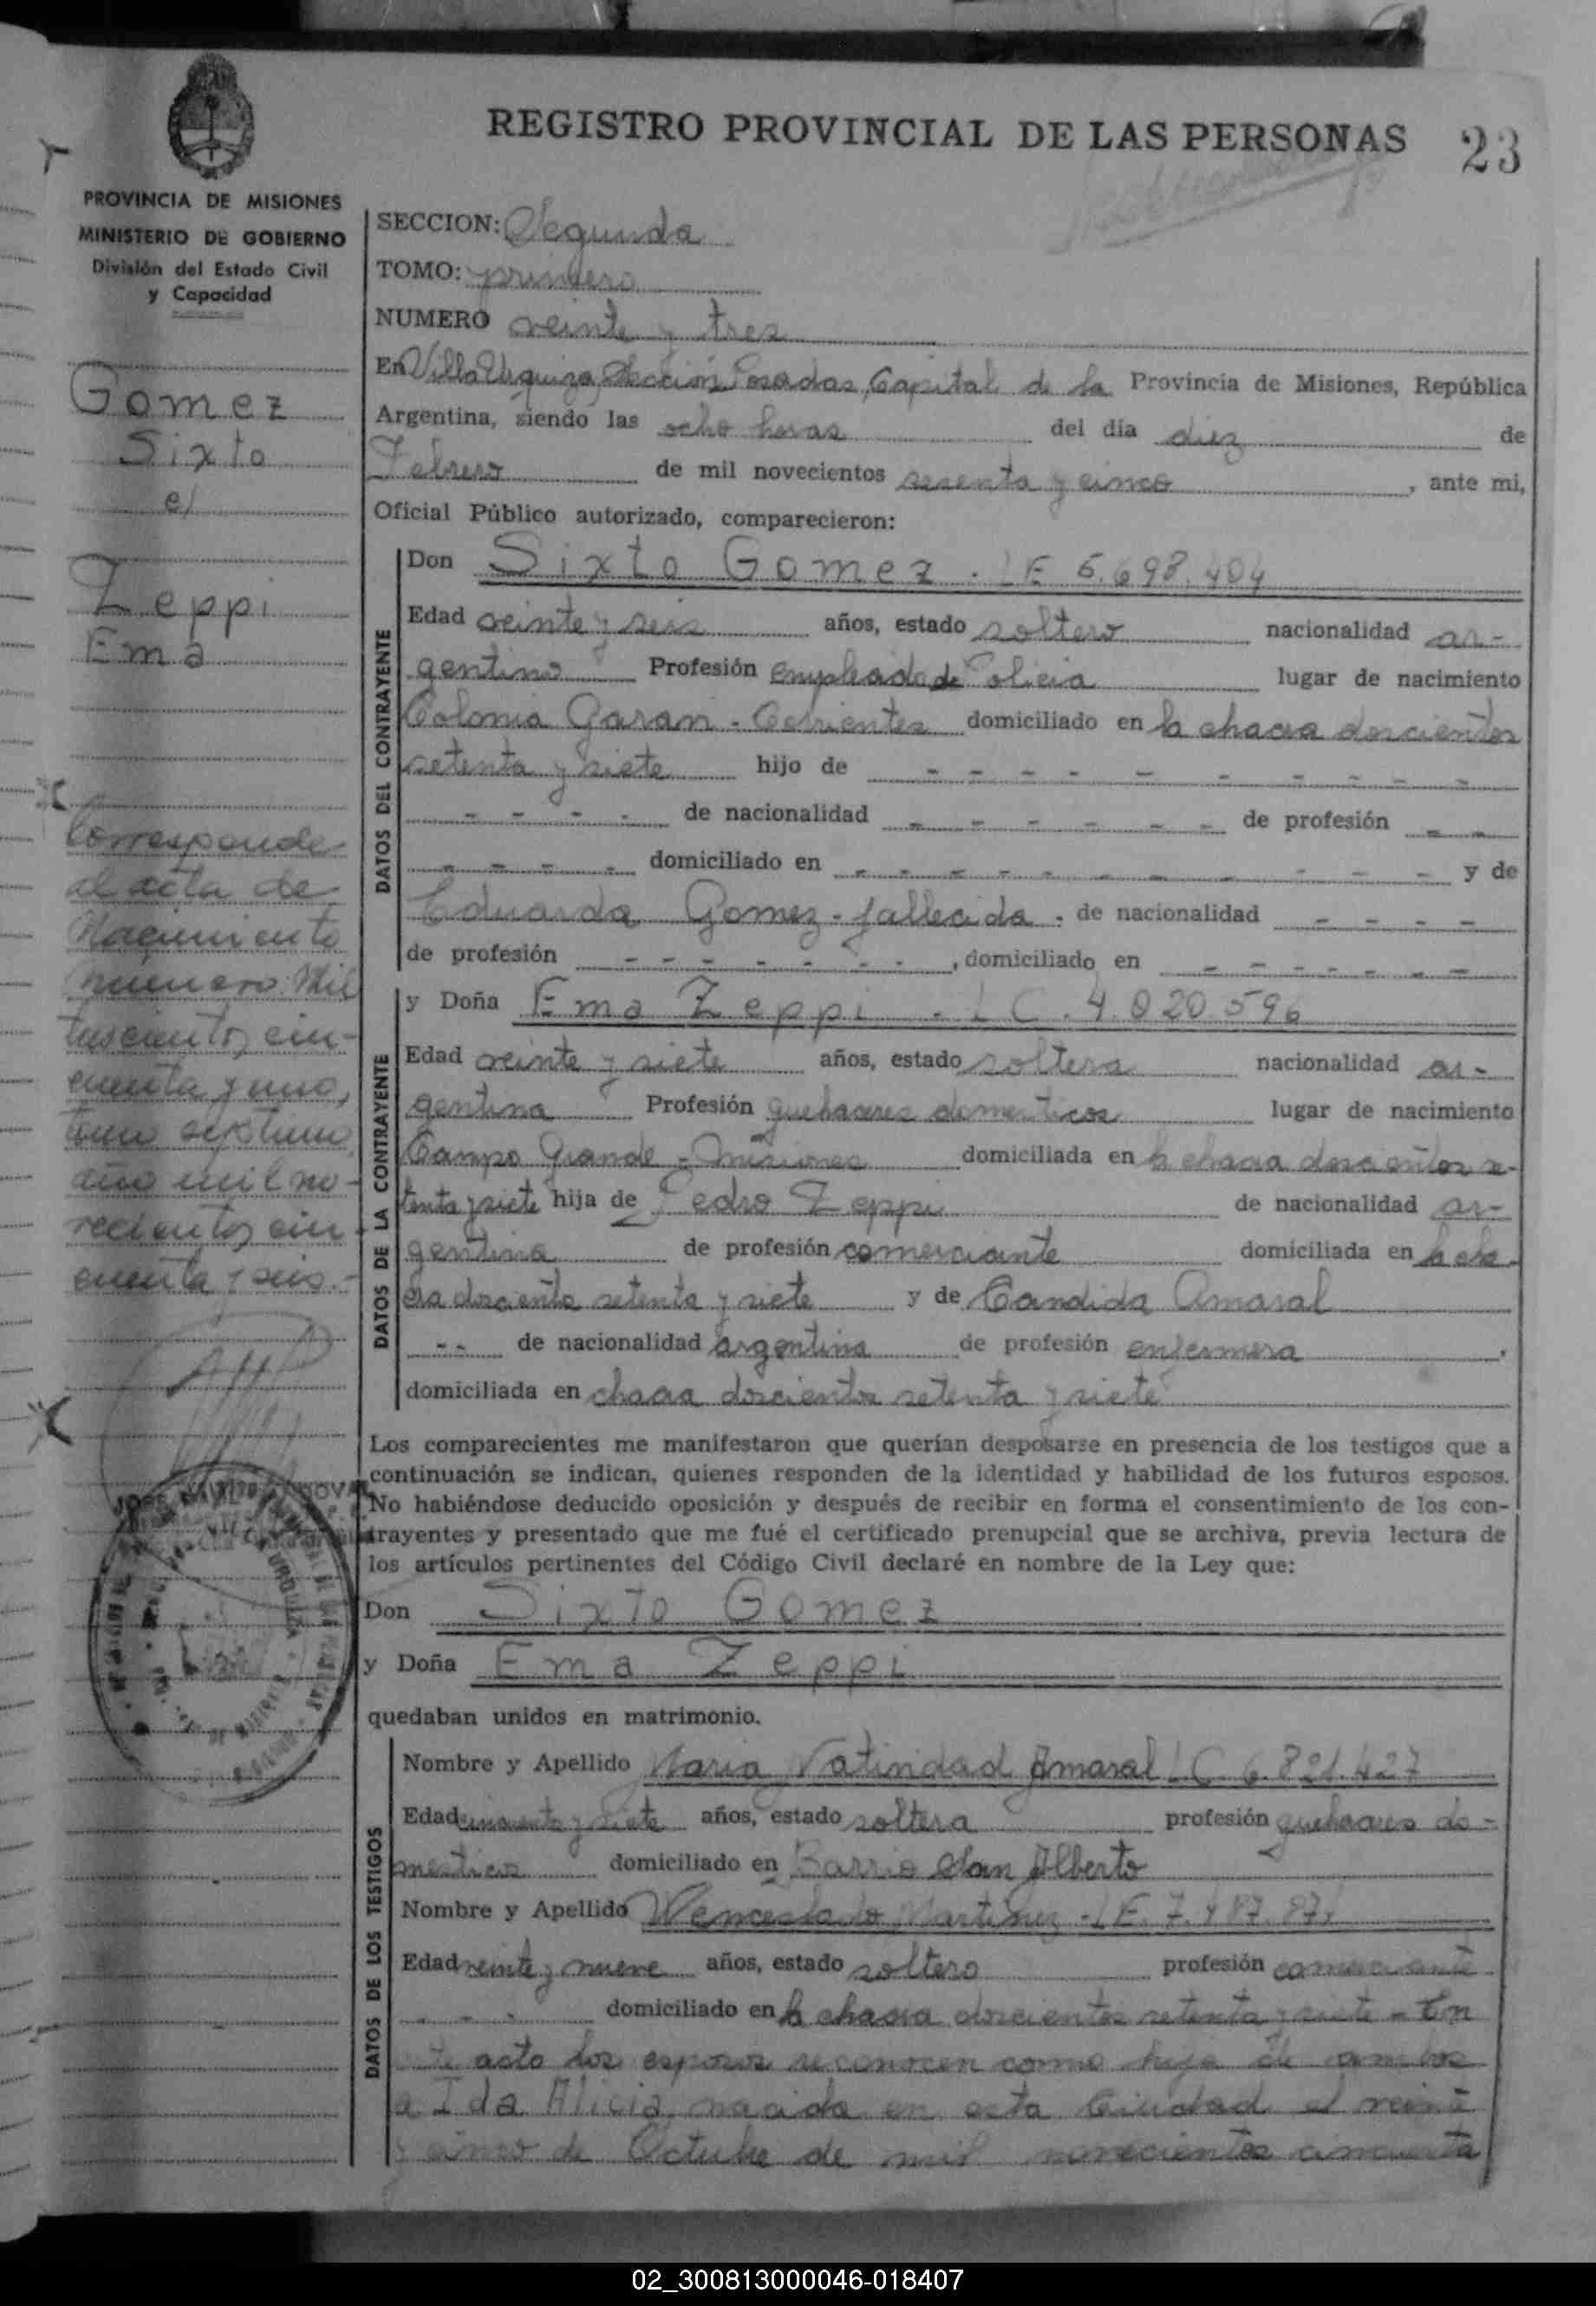 REGISTRO PROVINCIAL DE LAS PERSONAS 23
PROVINCIA DE MISIONES
MINISTERIO DE GOBIERNO
División del Estado Civil
y Capacidad
Gomez
Sixto
c/
Zeppi
Ema
Corresponde
al acta de
Nacimiento
número Mil
trescientos cin-
cuenta y uno,
tomo septimo
año mil no-
vecientos cin
cuenta y seis.-
SECCION: Segunda
TOMO: primero
NUMERO veinte y tres
En Villa Urquiza, Sección Posadas, Capital de la Provincia de Misiones, República
Argentina, siendo las ocho horas del día diez de
Febrero de mil novecientos sesenta y cinco, ante mi,
Oficial Público autorizado, comparecieron:
DATOS DEL CONTRAYENTE
Don Sixto Gomez. LE 5.698.404
Edad veinte y seis años, estado soltero nacionalidad ar-
gentino Profesión empleado de Policia lugar de nacimiento
Colonia Garan - Corrientes domiciliado en la chacra doscientos
setenta y siete hijo de - - - - - - - - - -
- - - - de nacionalidad - - - - - - de profesión - -
- - - - domiciliado en - - - - - - - - - - y de
Eduarda Gomez - fallecida. de nacionalidad - - - -
de profesión - - - - - - -, domiciliado en - - - - - -
DATOS DE LA CONTRAYENTE
y Doña Ema Zeppi . L C. 4.020.596
Edad veinte y siete años, estado soltera nacionalidad ar-
gentina Profesión quehaceres domesticos lugar de nacimiento
Campo Grande - Misiones domiciliada en la chacra doscientos se-
tenta y siete hija de Pedro Zeppi de nacionalidad ar-
gentina de profesión comerciante domiciliada en la cha-
cra doscientos setenta y siete y de Candida Amaral
- - de nacionalidad argentina de profesión enfermera.
domiciliada en chacra doscientos setenta y siete
Los comparecientes me manifestaron que querían desposarse en presencia de los testigos que a
continuación se indican, quienes responden de la identidad y habilidad de los futuros esposos.
No habiéndose deducido oposición y después de recibir en forma el consentimiento de los con-
trayentes y presentado que me fué el certificado prenupcial que se archiva, previa lectura de
los artículos pertinentes del Código Civil declaré en nombre de la Ley que:
Don Sixto Gomez
y Doña Ema Zeppi
quedaban unidos en matrimonio.
DATOS DE LOS TESTIGOS
Nombre y Apellido Maria Natividad Amaral LC 6.821.427
Edad cincuenta y siete años, estado soltera profesión quehaceres do-
mesticos domiciliado en Barrio San Alberto
Nombre y Apellido Wenceslado Martinez - LE. 7.487.871
Edad veinte y nueve años, estado soltero profesión comerciante
- - - domiciliado en la chacra doscientos setenta y siete - En
te acto los esposos reconocen como hija de ambos
a Ida Alicia nacida en esta Ciudad el veinte
y cinco de Octubre de mil novecientos cincuenta
02_300813000046-018407